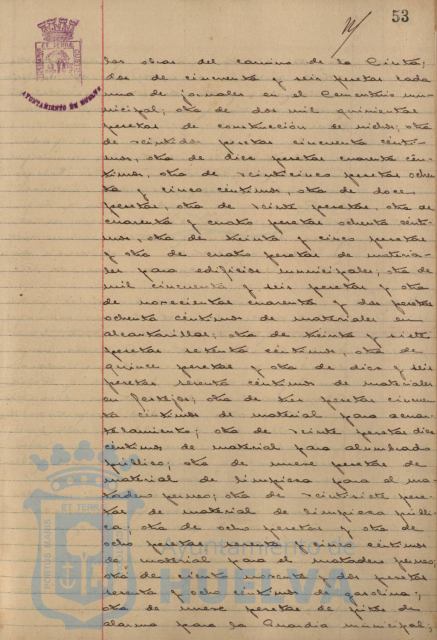 53
AYUNTAMIENTO DE HUELVA
las obras del camino de la Cinta;
dos de cincuenta y seis pesetas cada
una de jornales en el Cementerio mu-
nicipal; otra de dos mil quinientas
pesetas de construcción de nichos;
de veintidos pesetas cincuenta cénti-
mos, otra de diez pesetas cuarenta cén-
timos, otra de veinticinco pesetas ochen-
ta y cinco céntimos, otra de doce
pesetas, otra de veinte pesetas, otra de
cuarenta y cuatro pesetas ochenta cénti-
mos, otra de treinta y cinco pesetas
y otra de cuatro pesetas de materia-
les para edificios municipales; otra de
mil cincuenta y seis pesetas y otra
de novecientas cuarenta y dos pesetas
ochenta céntimos de materiales en
alcantarillas; otra de treinta y siete
pesetas setenta céntimos, otra de
quince pesetas y otra de diez y seis
pesetas sesenta céntimos de materiales
en festejos; otra de tres pesetas cincuen-
ta céntimos de material para acuar-
telamiento; otra de veinte pesetas diez
céntimos de material para alumbrado
público; otra de nueve pesetas de
material de limpieza para el ma-
tadero; otra de veintisiete pese-
tas de material de limpieza públi-
ca; otra de ocho pesetas y otra de
ocho pesetas sesenta y cinco céntimos
de material para el matadero
otra de ciento noventa y dos pesetas
sesenta y ocho céntimos de gasolina;
otra de nueve pesetas de pitos de
alarma para la Guardia municipal;
Ayuntamiento de
HUELVA